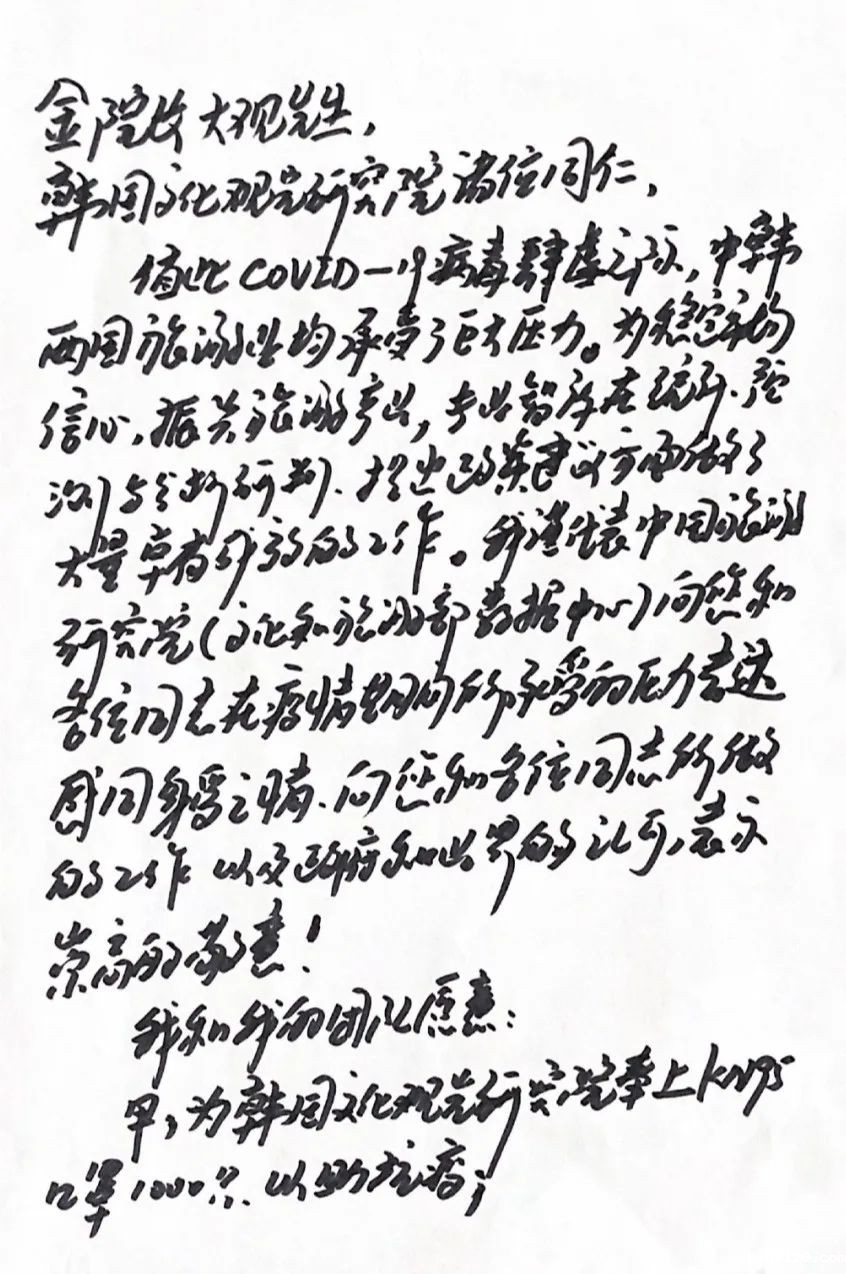 金院长大观先生,
韩国文化观光研究院诸位同仁,
值此COVID-19病毒肆虐之际,中韩
两国旅游业均承受了巨大压力。为稳定市场
信心,振兴旅游产业,专业智库在统计、预
测与分析研判、提出政策建议方面做了
大量卓有成效的工作。我谨代表中国旅游
研究院(文化和旅游部数据中心)向您和
各位同志在疫情期间所承受的压力表达
感同身受之情、向您和各位同志所做
的工作以及政府和业界的认可,表示
崇高的敬意!
我和我的团队愿意:
甲,为韩国文化观光研究院奉上KN95
口罩1000只、以助抗疫;